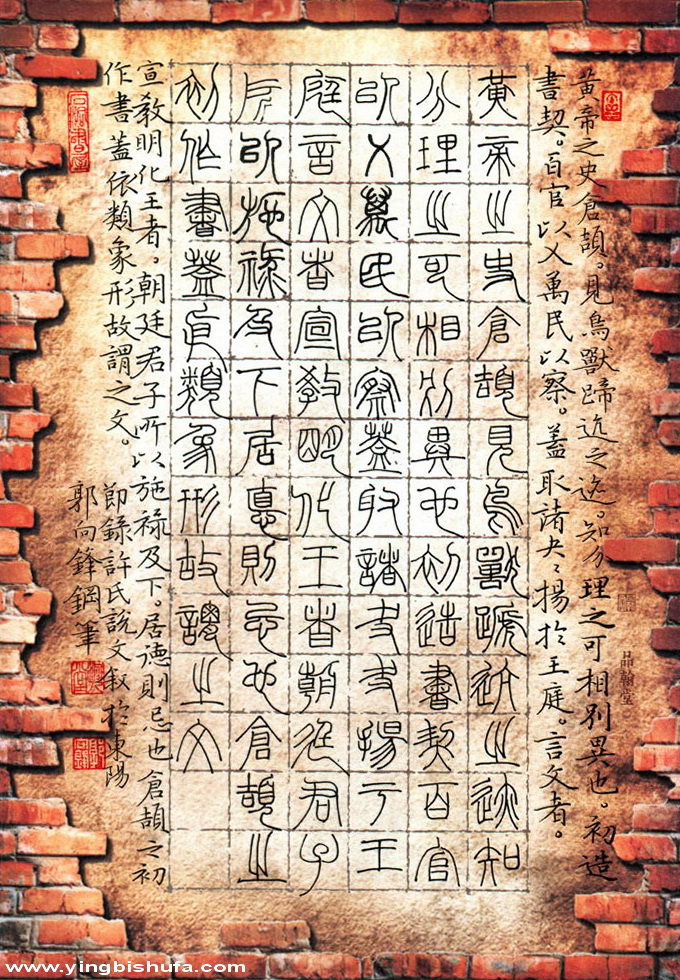 黃帝之史倉頡。見鳥獸蹄迒之迹。知分理之可相別異也。初造
書契。百官以乂萬民以察。蓋取諸夬、夬揚於王庭。言文者。
黃帝之史倉頡見鳥獸蹏迒之迹知
分理之可相別異也初造書契百官
以乂萬民以察蓋取諸夬夬揚于王
庭言文者宣教明化王者朝廷君子
所以施祿及下居悳則忌也倉頡之
初作書蓋依類象形故謂之文
宣教明化王者。朝廷君子所以施祿及下。居德則忌也倉頡之初
作書蓋依類象形故謂之文。
節錄許氏說文敘於東陽
郭向鋒鋼筆
品翰堂
www.yingbishufa.com